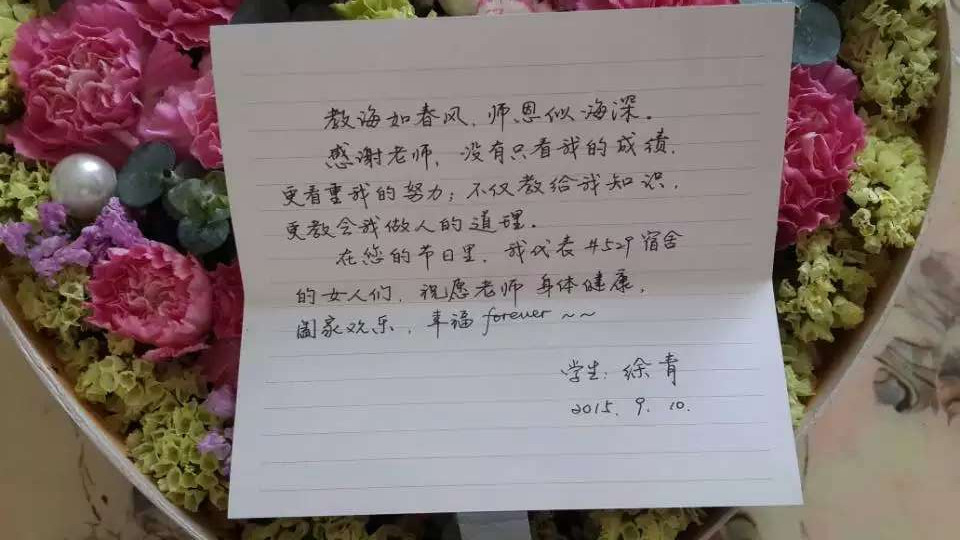 教诲如春风，师恩似海深。
感谢老师，没有只看我的成绩，
更看重我的努力；不仅教给我知识，
更教会我做人的道理。
在您的节日里，我代表#529宿舍
的女人们，祝愿老师身体健康，
阖家欢乐，幸福forever~~
学生：徐青
2015.9.10.